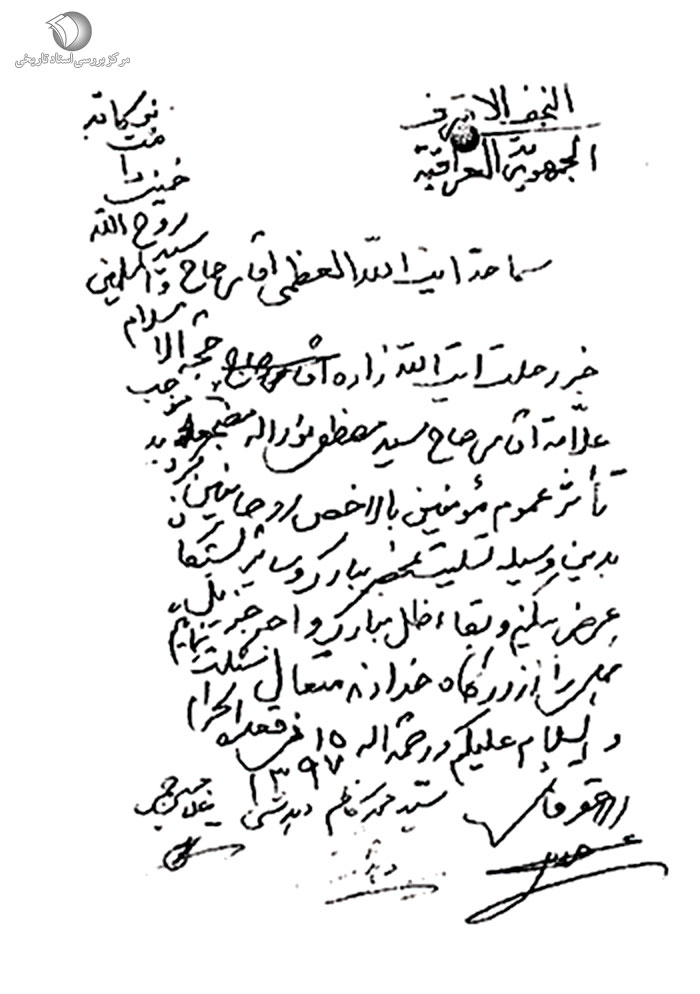 مرکز بررسی اسناد تاریخی
النجف الاشرف
الجمهوریة العراقیة
سماحة ایت الله العظمی اقای حاج سید روح الله خمینی دامت برکاته
خبر رحلت ایت الله زاده حجة الاسلام والمسلمین
علامة اقای حاج سید مصطفی نورالله مضجعه موجب
تأثر عموم مؤمنین بالاخص روحانیین گردید
بدین وسیله تسلیت بمحضر مبارک و سائر بستگان
عرض میکنیم و بقاء ظل مبارک و اجر جزیل
را از درگاه خداوند متعال مسئلت مینمائیم
والسلام علیکم ورحمة الله ۱۵ ذی قعدة الحرام
۱۳۹۷
سید محمد کاظم